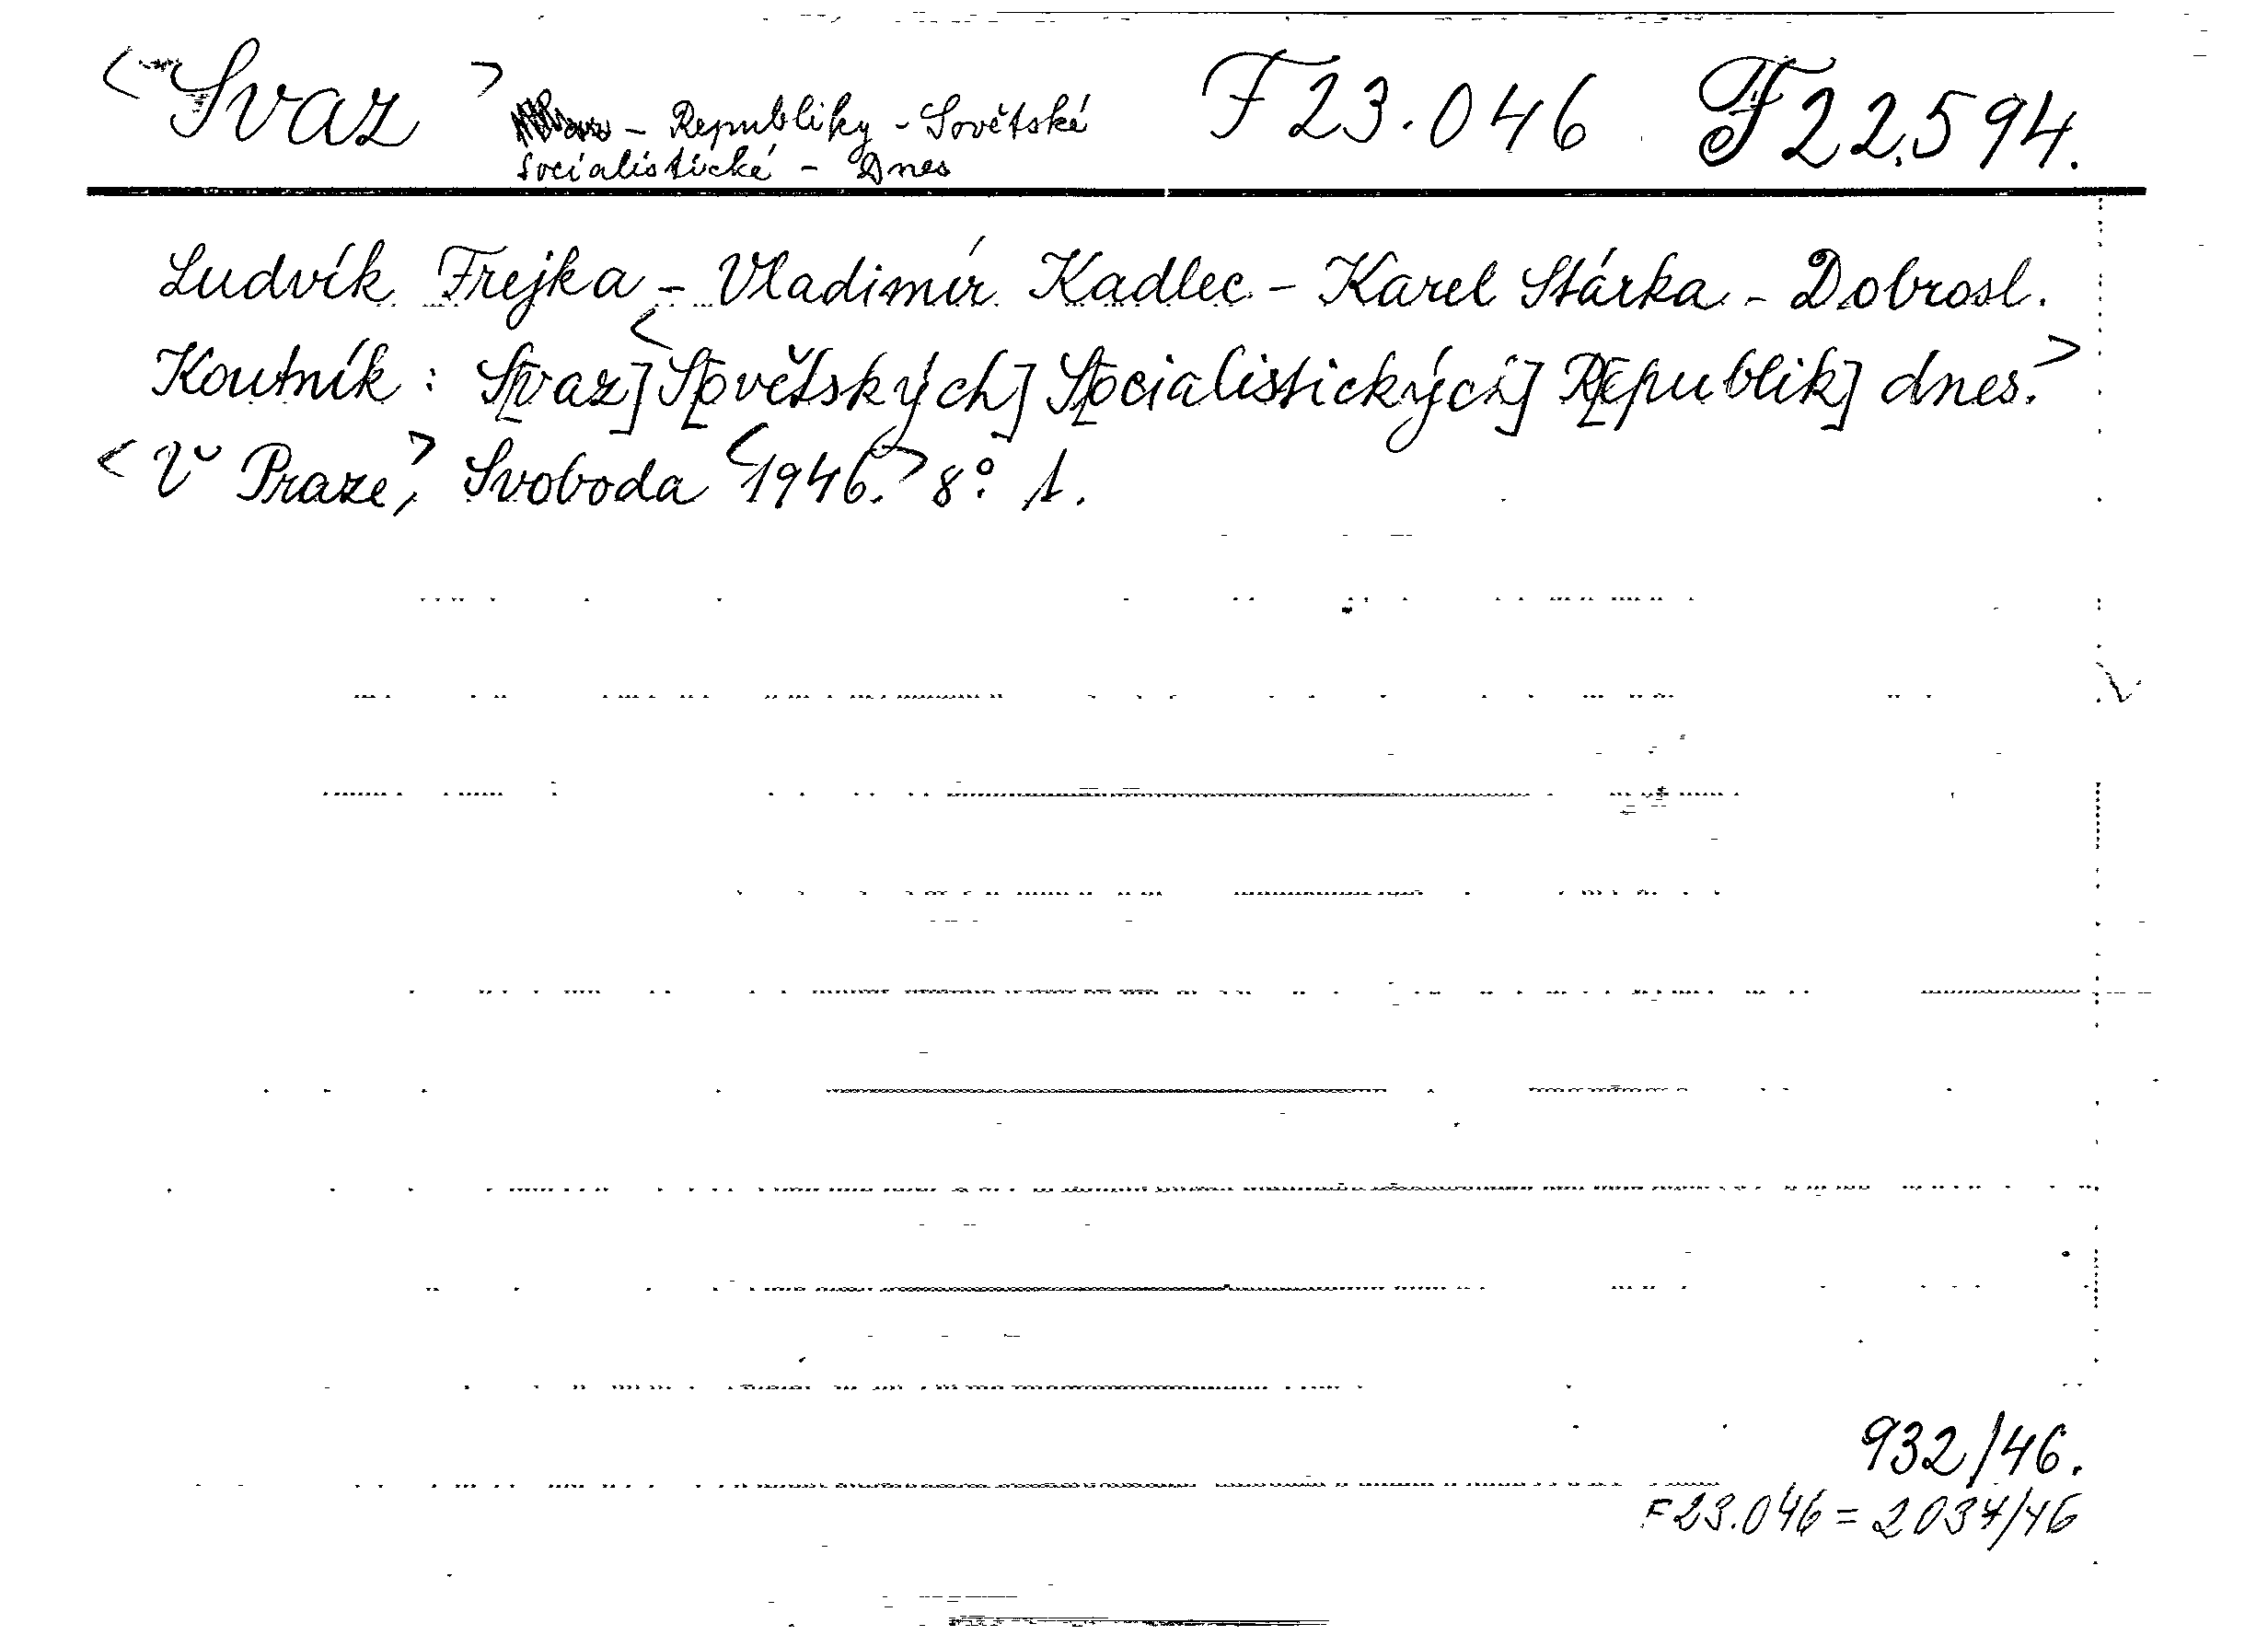 <Svaz> – Republiky – Sovětské F 23.046 F 22.594.
Socialistické – Dnes
Ludvík Frejka – Vladimír Kadlec – Karel Stárka – Dobrosl.
Koutník : S[vaz] <S[ovětských] S[ocialistických] R[epublik] dnes.>
<V Praze,> Svoboda <1946.> 8°. 1.
932/46.
F 23.046 = 2037/46